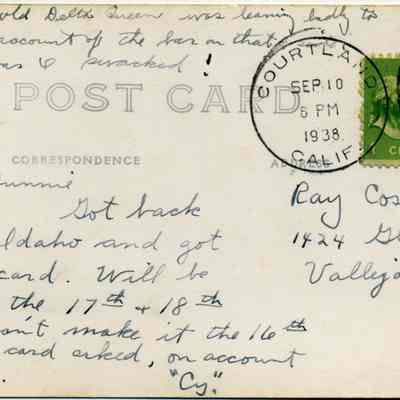 old Delta Queen was leaning badly to
account of the bar on that
was 6 swacked!
POST CARD
COURTLAND
SEP 10
6 PM
1938
CALIF.
CORRESPONDENCE
ADDRESS
Got back
Idaho and got
card. Will be
the 17th + 18th
make it the 16th
card asked, on account
"Cy."
Ray Cos
1424
Vallejo